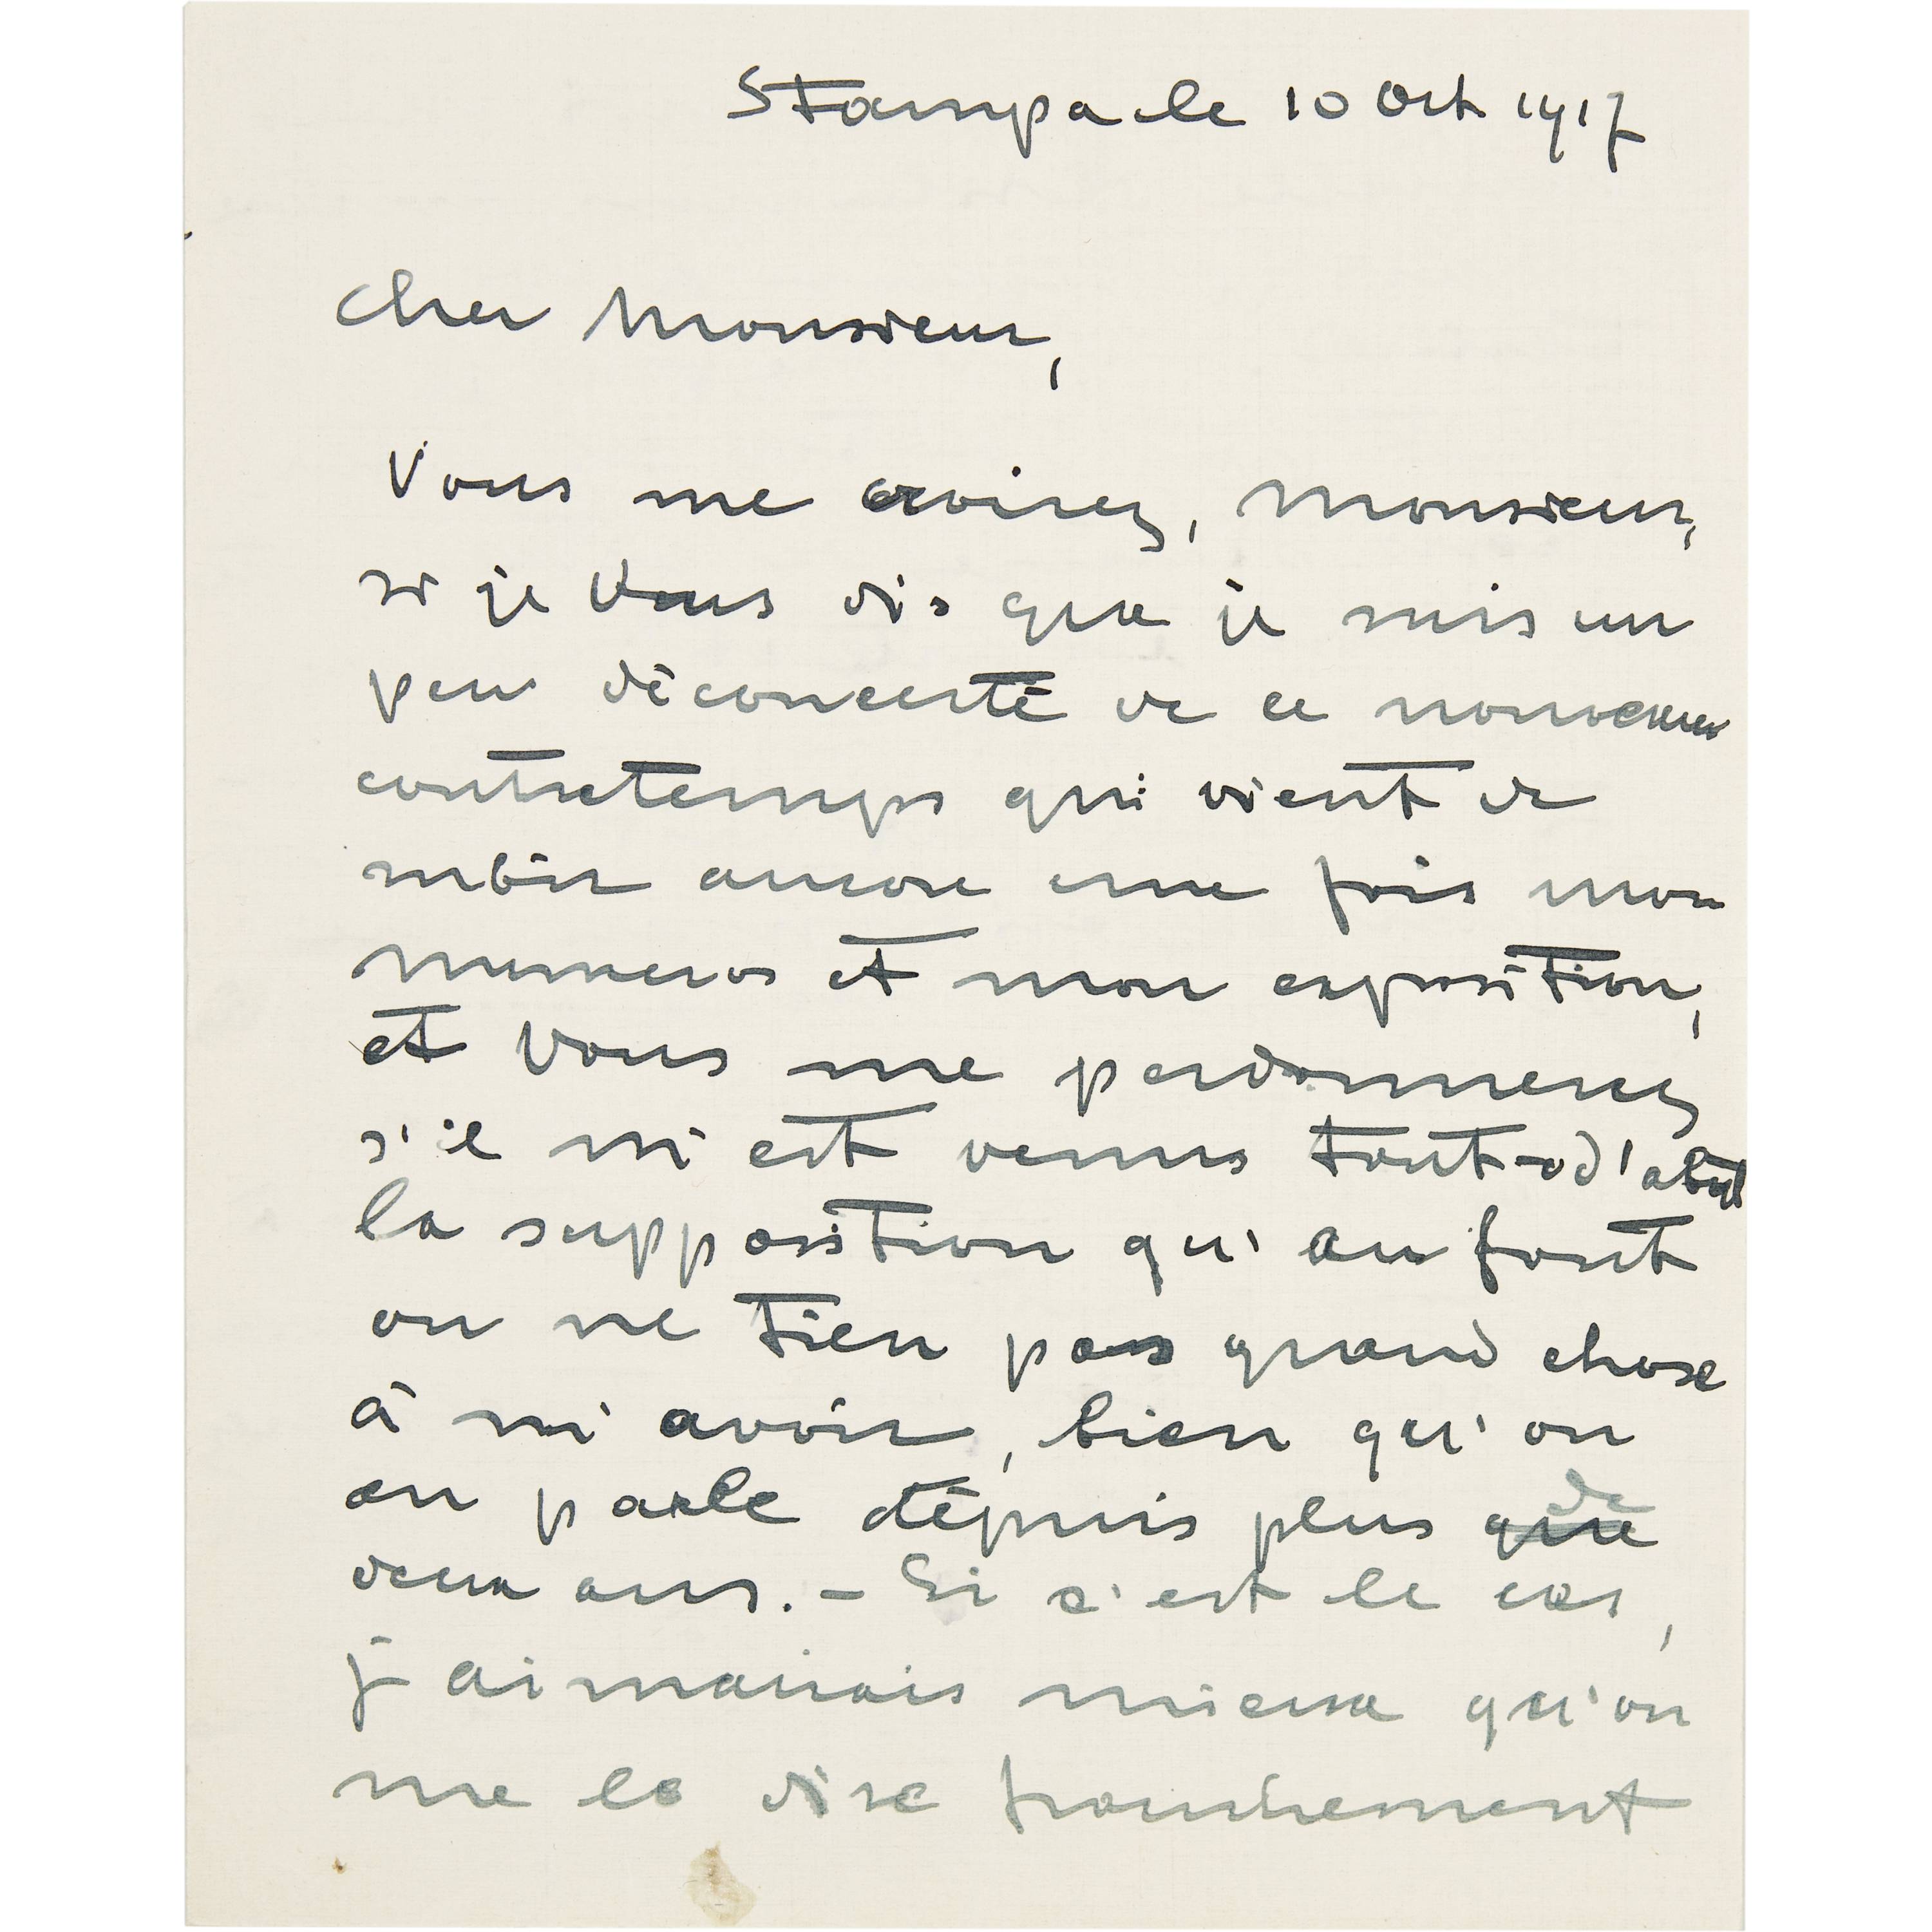 Stampa le 10 Oct 1917
Cher Monsieur,
Vous me croirez, Monsieur,
si je Vous dis que je suis un
peu déconcerté de ce nouveau
contretemps qui vient de
subir encore une fois mon
numeros et mon exposition,
et Vous me pardonnerez
s'il m'est venus tout-d'abord
la supposition qu'au font
on ne tien pas grand chose
à m'avoir, bien qu'on
en parle dépuis plus de
deux ans. – Si c'est le cas,
j'aimerais mieux qu'on
me le dise franchement